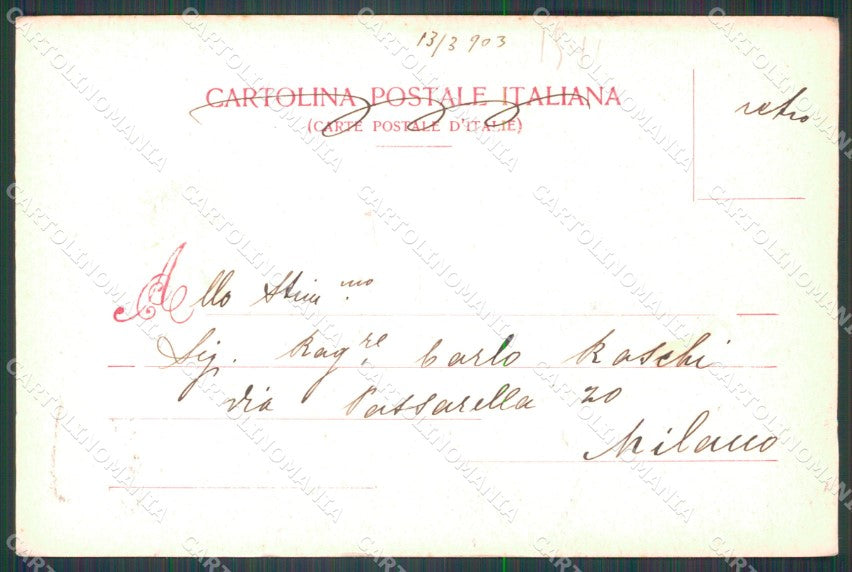 13/3 903
CARTOLINA POSTALE ITALIANA
(CARTE POSTALE D'ITALIE)
retro
Allo Stim.mo
Sig. Rag.re Carlo Raschi
Via Passarella 20
Milano
CARTOLINOMANIA